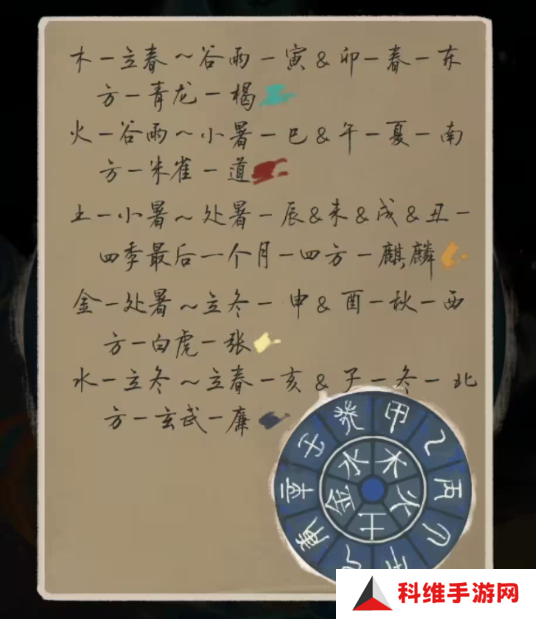 木一立春～谷雨一寅&卯一春一东
方一青龙一楬
火一谷雨～小暑一巳&午一夏一南
方一朱雀一道
土一小暑～处暑一辰&未&戌&丑一
四季最后一个月一四方一麒麟
金一处暑～立冬一申&酉一秋一西
方一白虎一张
水一立冬～立春一亥&子一冬一北
方一玄武一廉
癸 甲 乙 丙
水 木 火 土 金
科维手游网